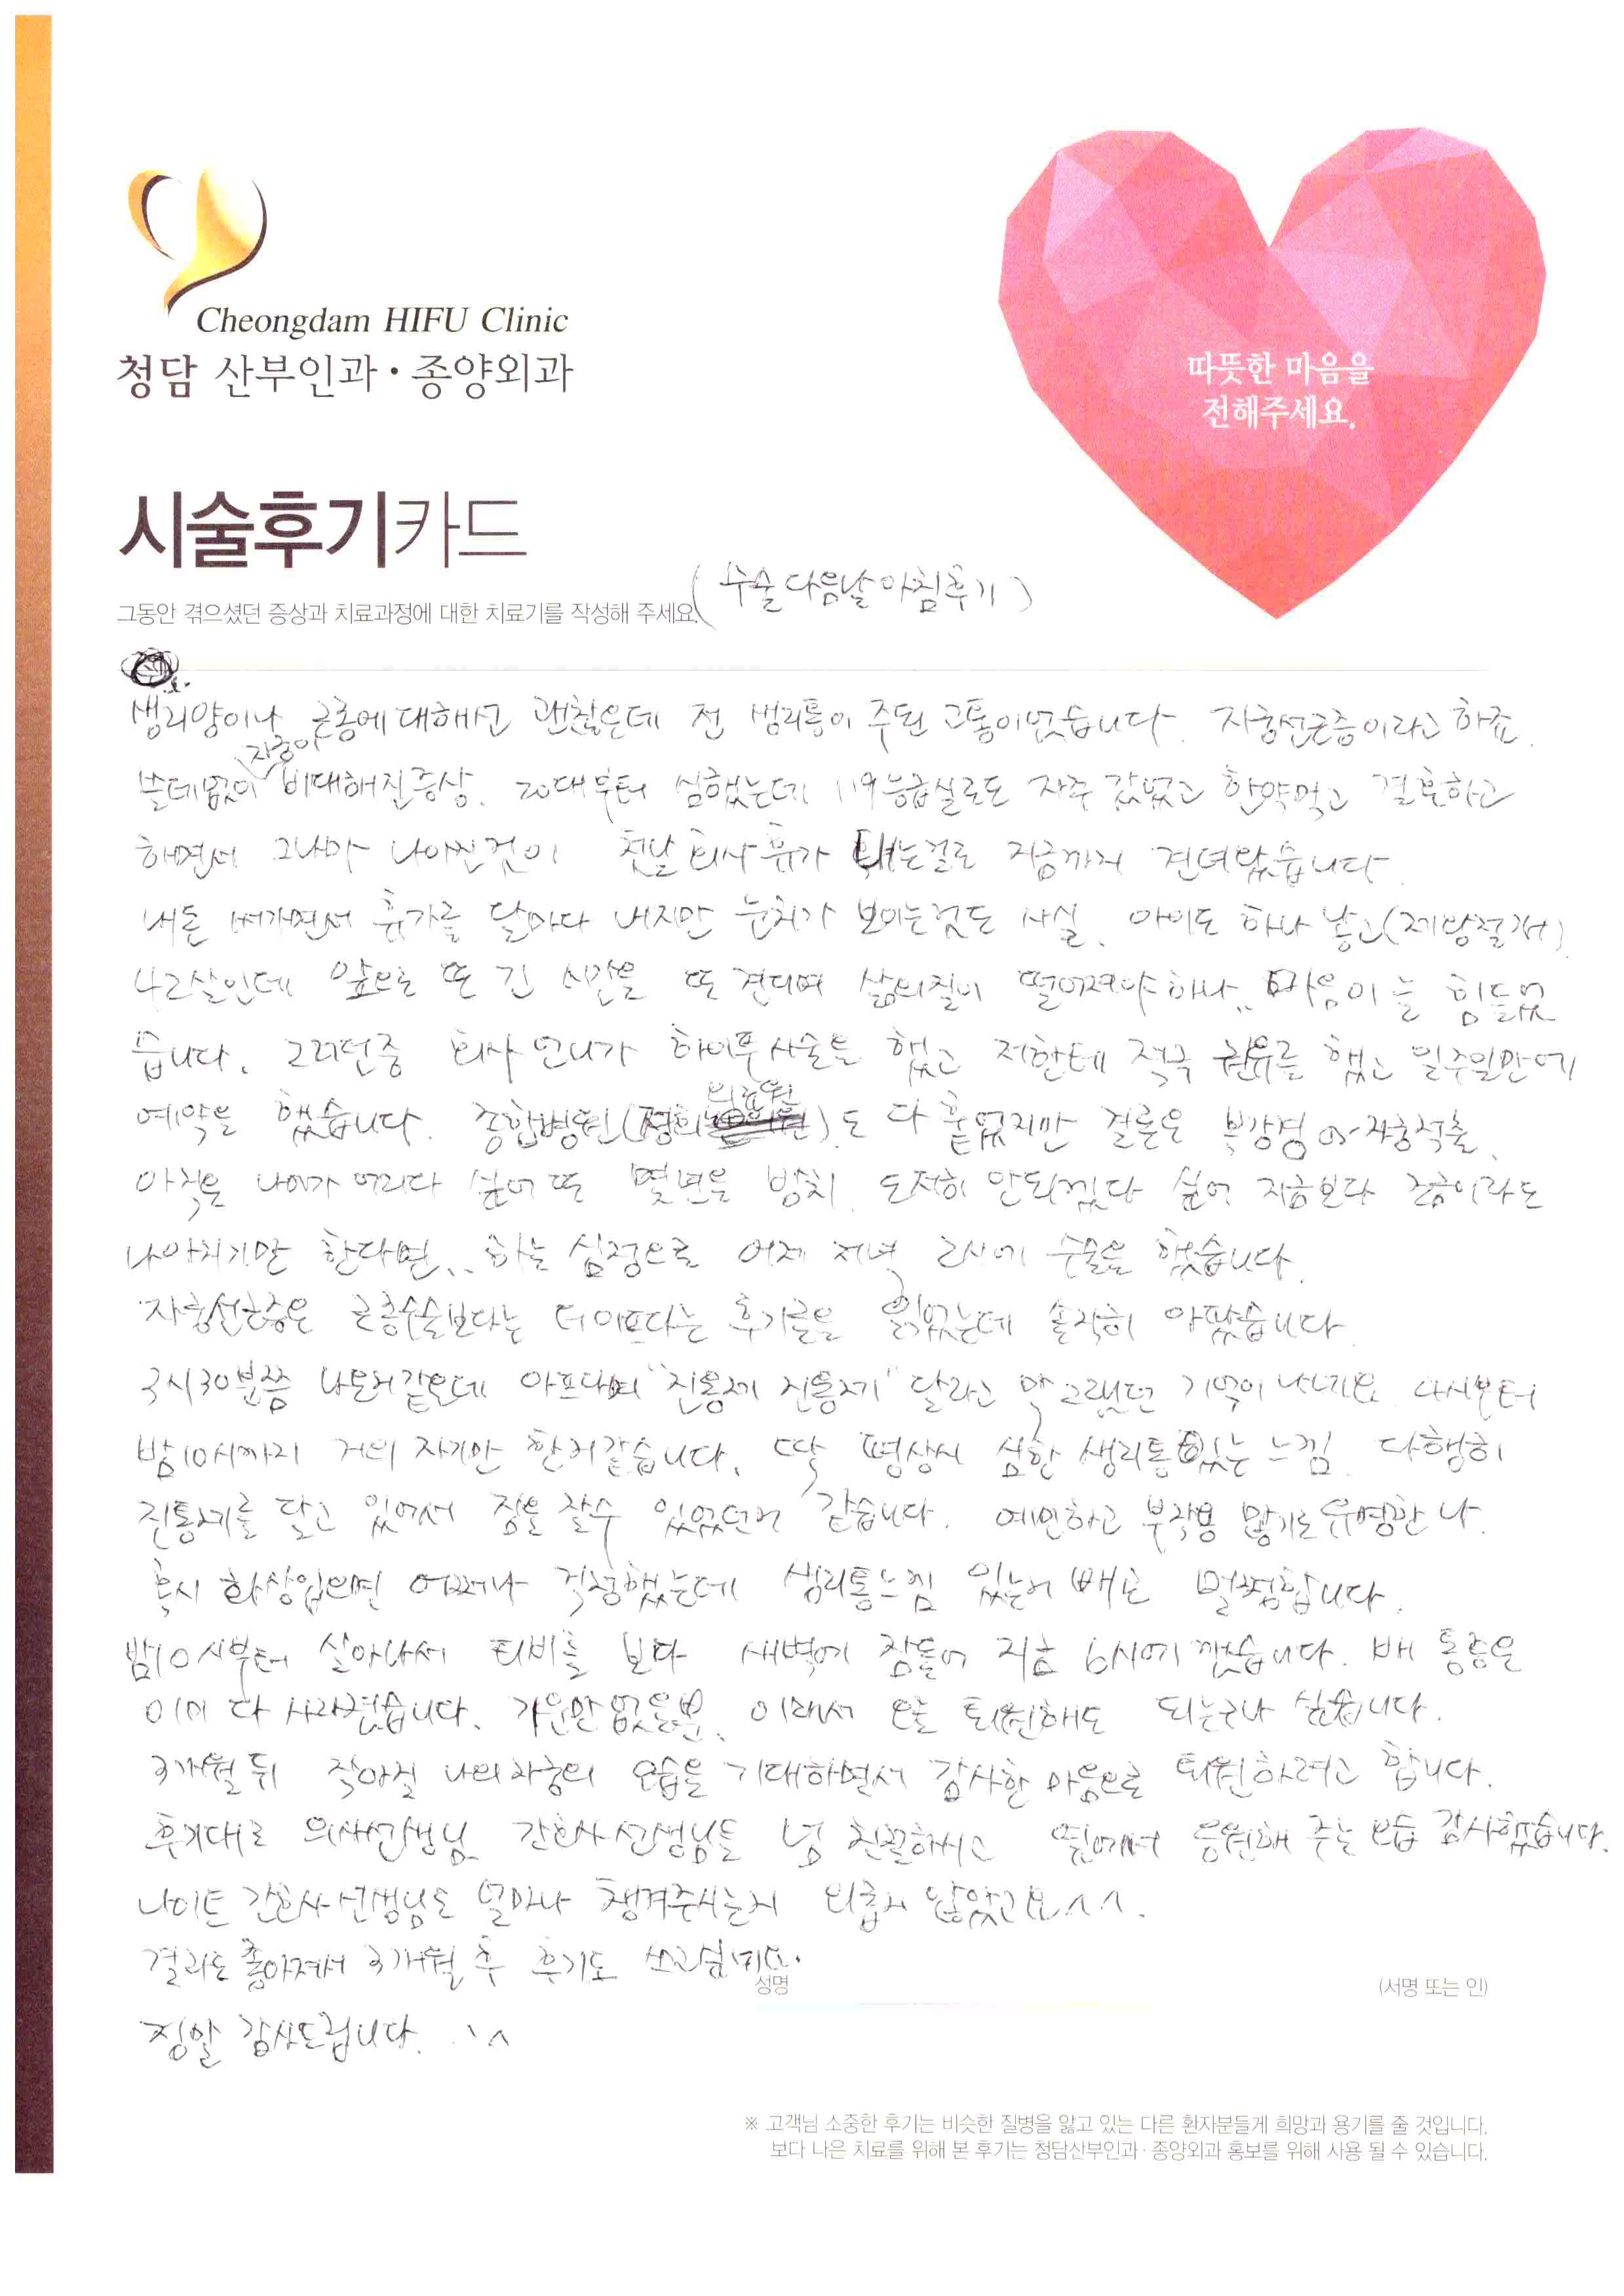 Cheongdam HIFU Clinic
청담 산부인과·종양외과
따뜻한 마음을
전해주세요.
시술후기카드
그동안 겪으셨던 증상과 치료과정에 대한 치료기를 작성해 주세요.
(수술다음날아침후기)
생리양이나 근종에 대해서고 괜찮은데 전 생리통이 주된 고통이었습니다. 자궁선근증이라고 하죠.
쓸데없이 자궁이 비대해진증상. 20대부터 심했는데 119응급실로도 자주 갔었고 한약먹고 결혼하고
해면서 그나마 나아진것이 첫날 회사 휴가 내는걸로 지금까지 견뎌왔습니다.
내돈 써가면서 휴가를 달마다 내지만 눈치가 보이는것도 사실. 아이도 하나 낳고(제왕절개)
42살인데 앞으로 또 긴 시간을 또 견디며 삶의질이 떨어져야하나.. 마음이 늘 힘들었
습니다. 그러던중 회사 언니가 하이푸시술을 했고 저한테 적극 권유를 했고 일주일만에
예약을 했습니다. 종합병원(경희의료원)도 다 훑었지만 결론은 복강경 or 자궁적출.
아직은 나이가 어리다 싶어 또 몇년을 방치. 도저히 안되겠다 싶어 지금보다 조금이라도
나아지기만 한다면.. 하는 심정으로 어제 저녁 2시에 수술을 했습니다.
자궁선근증은 근종수술보다는 더아프다는 후기글을 읽었는데 솔직히 아팠습니다.
3시30분쯤 나온거같은데 아프다며 "진통제 진통제" 달라고 막 그랬던 기억이 나네요. 다시부터
밤10시까지 거의 자기만 한거같습니다. 딱 평상시 심한 생리통있는 느낌. 다행히
진통제를 달고 있어서 잠을 잘수 있었던거 같습니다. 예민하고 부작용 많기로유명한 나.
혹시 화상입으면 어쩌나 걱정했는데 생리통느낌 있는거 빼고 멀쩡합니다.
밤10시부터 살아나서 티비를 보다 새벽에 잠들어 지금 6시에 깼습니다. 배 통증은
이미 다 사라졌습니다. 기운만 없을뿐. 이래서 오늘 퇴원해도 되는구나 싶습니다.
3개월 뒤 작아질 나의자궁의 모습을 기대하면서 감사한 마음으로 퇴원하려고 합니다.
후기대로 의사선생님 간호사선생님들 넘 친절하시고 옆에서 응원해 주는 모습 감사했습니다.
나이트 간호사선생님도 얼마나 챙겨주시는지 외롭지 않았고요^^.
결과도 좋아져서 3개월 후 후기도 쓰고싶네요.
성명
(서명 또는 인)
정말 감사드립니다. ^^
※ 고객님 소중한 후기는 비슷한 질병을 앓고 있는 다른 환자분들게 희망과 용기를 줄 것입니다.
보다 나은 치료를 위해 본 후기는 청담산부인과·종양외과 홍보를 위해 사용 될 수 있습니다.